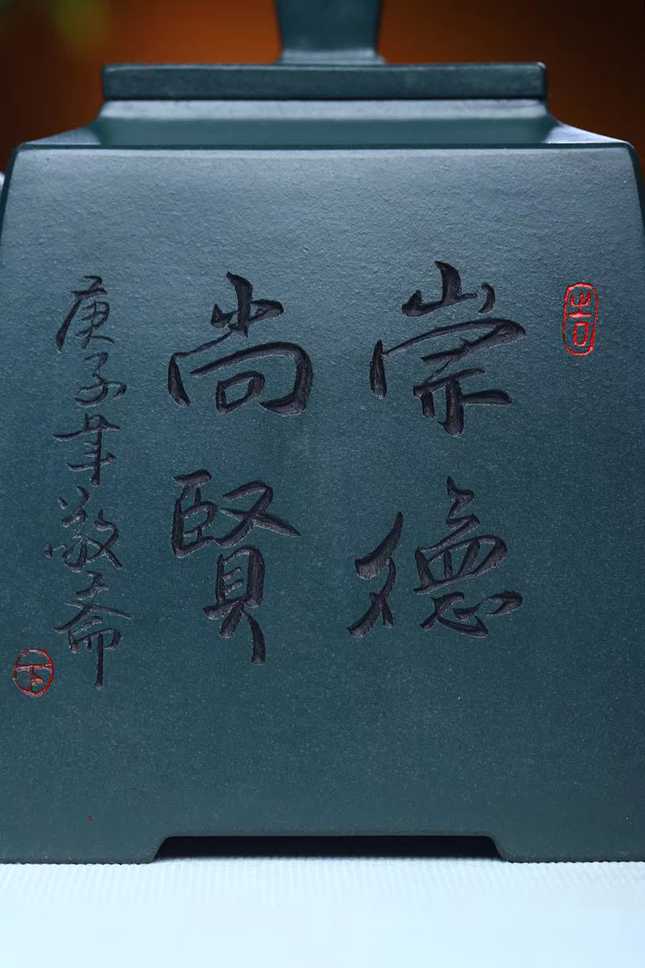 崇德
尚賢
庚子年敬斋